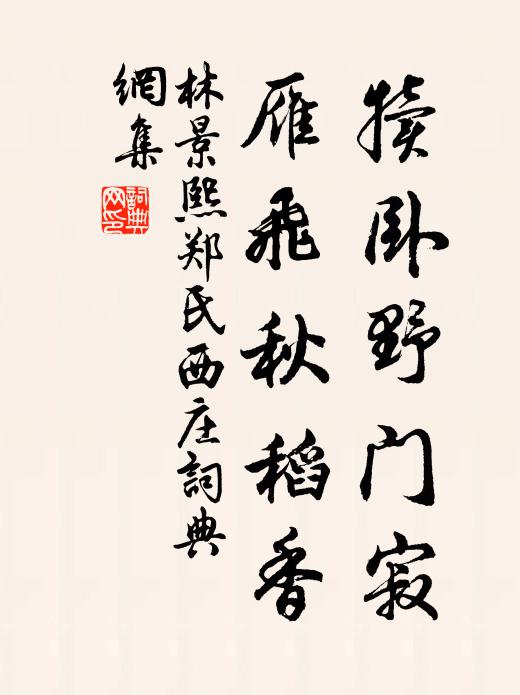 犊卧野门寂
雁飞秋稻香
林景熙郑氏西庄詞典
網集
詞典网印